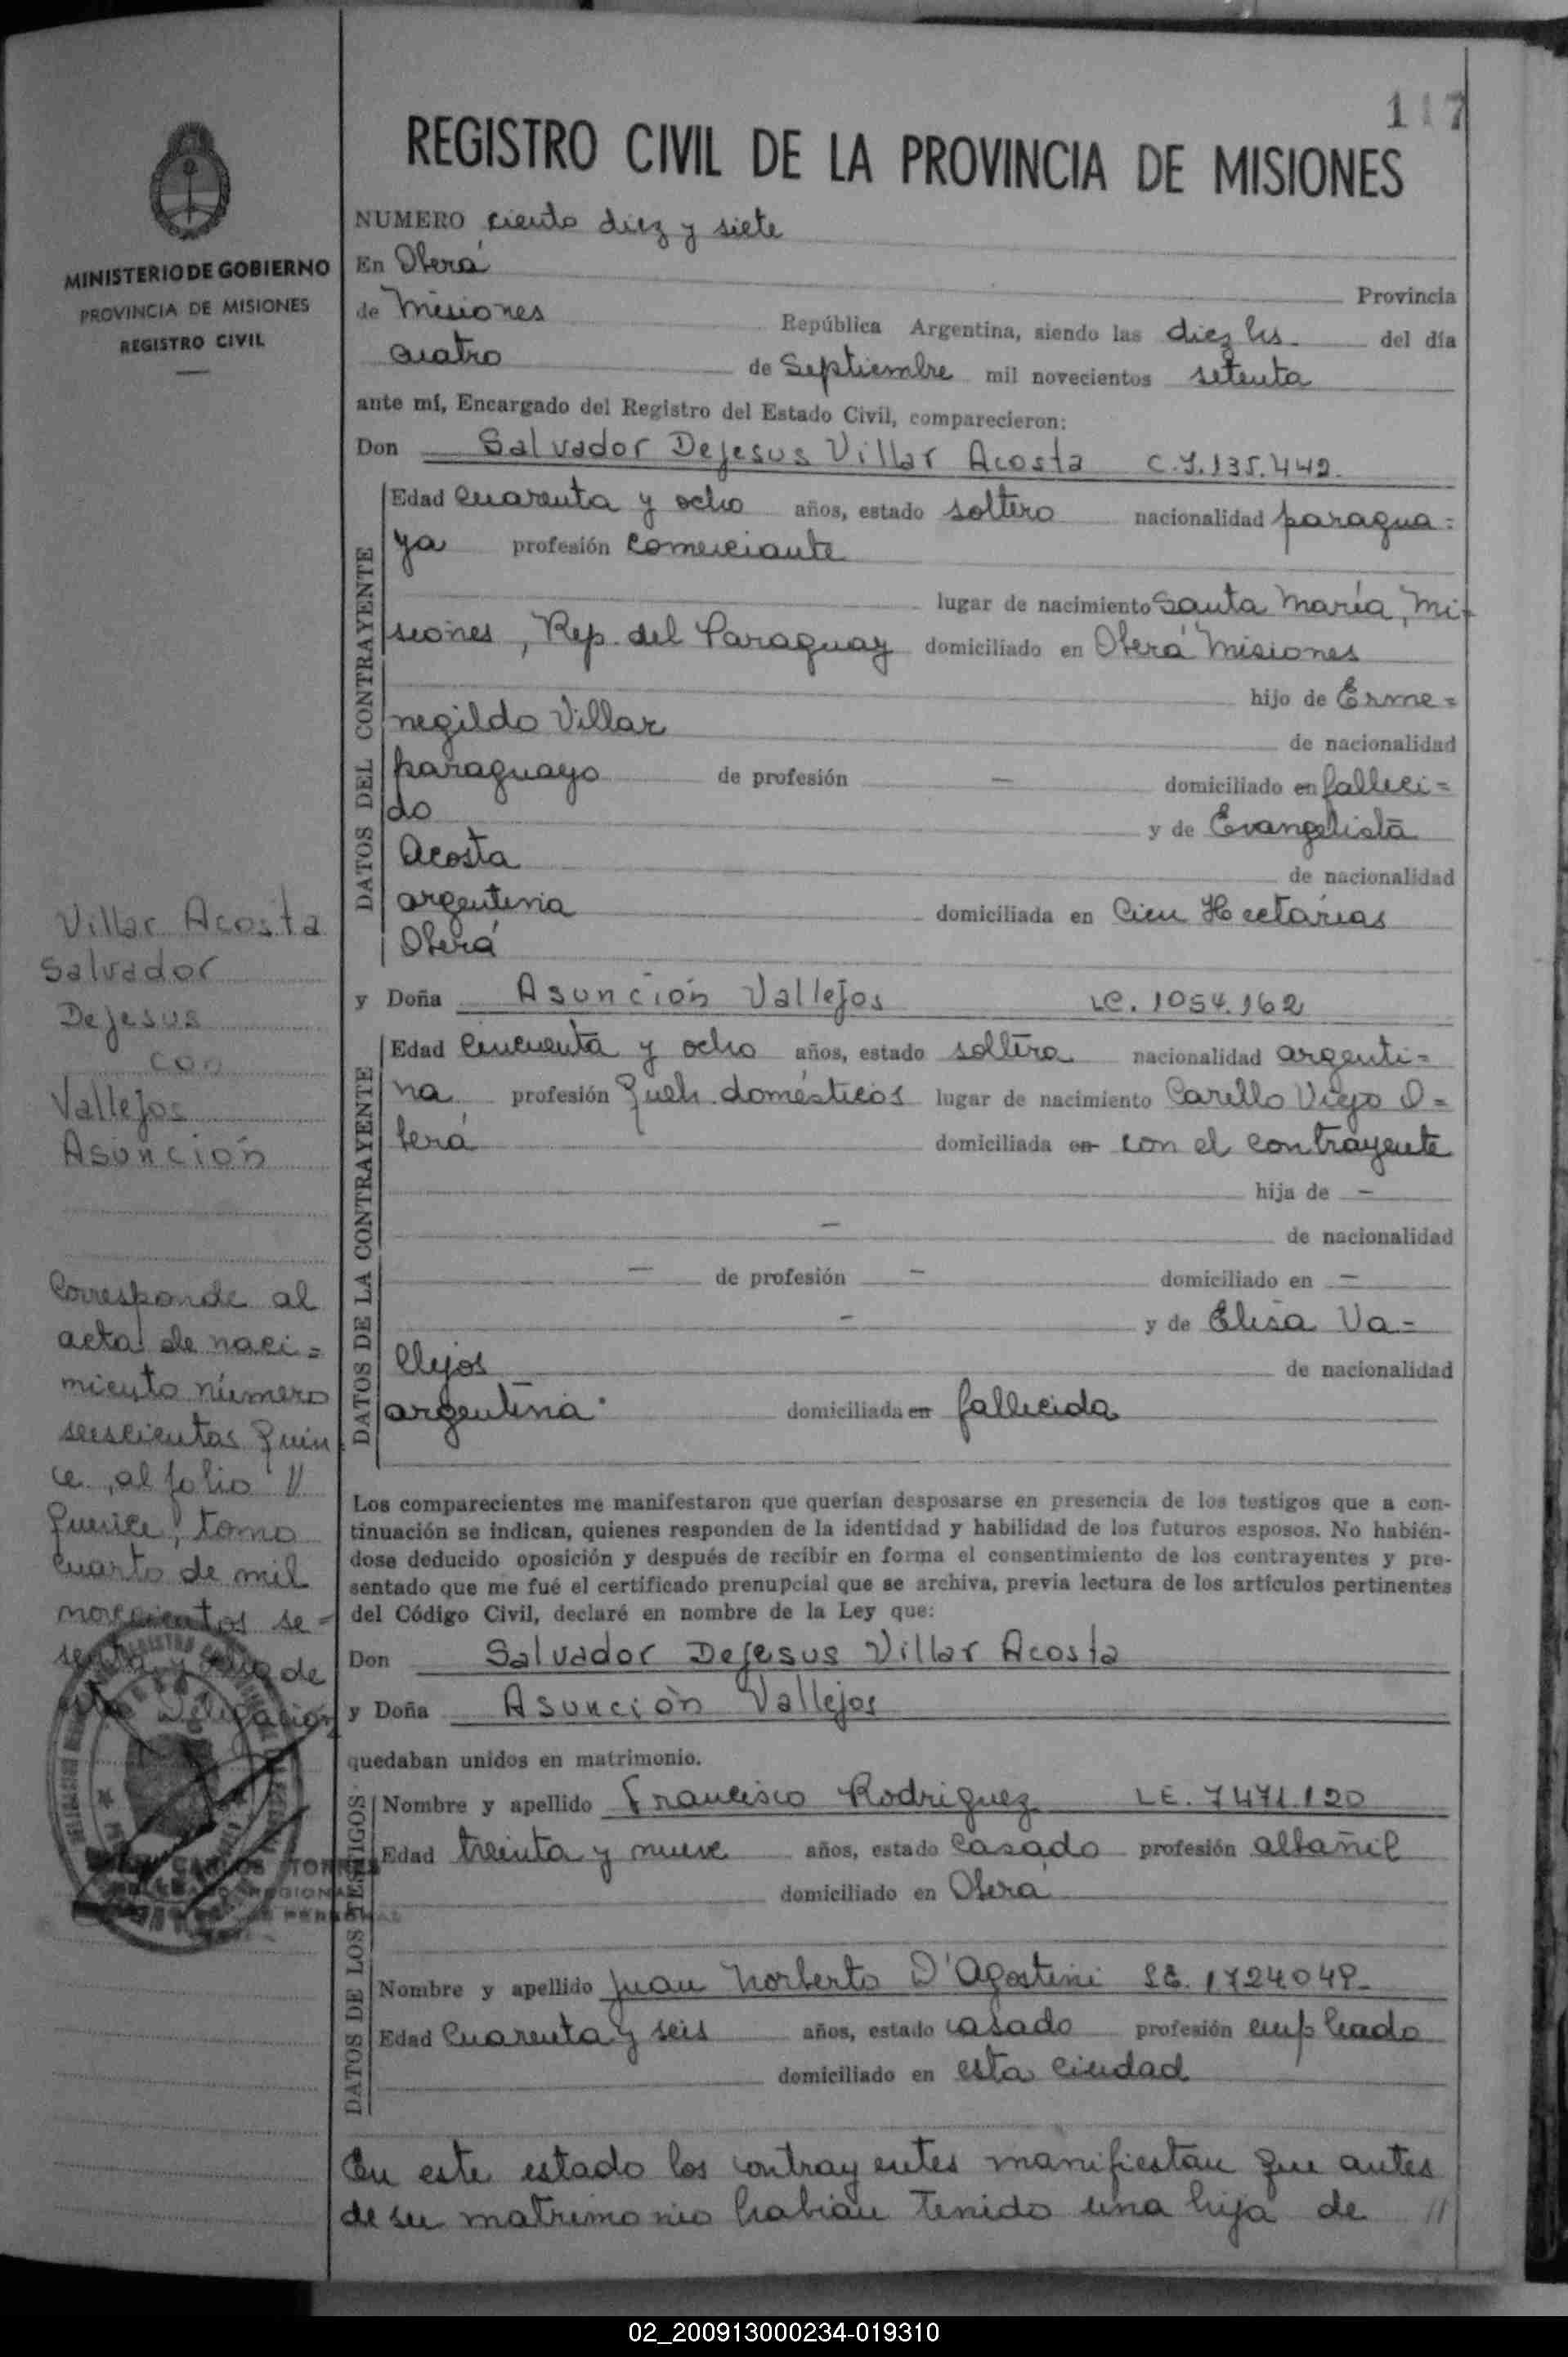 117
REGISTRO CIVIL DE LA PROVINCIA DE MISIONES
MINISTERIO DE GOBIERNO
PROVINCIA DE MISIONES
REGISTRO CIVIL
NUMERO ciento diez y siete
En Oberá Provincia
de Misiones República Argentina, siendo las diez hs. del día
cuatro de Septiembre mil novecientos setenta
ante mí, Encargado del Registro del Estado Civil, comparecieron:
Don Salvador Dejesus Villar Acosta C.I. 135.442.
DATOS DEL CONTRAYENTE
Edad cuarenta y ocho años, estado soltero nacionalidad paragua=
ya profesión comerciante
lugar de nacimiento Santa María, Mi=
siones, Rep. del Paraguay domiciliado en Oberá Misiones
hijo de Erme=
negildo Villar de nacionalidad
paraguayo de profesión — domiciliado en falleci=
do y de Evangelista
Acosta de nacionalidad
argentina domiciliada en Cien Hectárias
Oberá
y Doña Asunción Vallejos LC. 1054.162
DATOS DE LA CONTRAYENTE
Edad cincuenta y ocho años, estado soltera nacionalidad argenti=
na profesión Queh. domésticos lugar de nacimiento Carello Viejo O=
berá domiciliada en con el contrayente
hija de —
— de nacionalidad
— de profesión — domiciliado en —
— y de Elisa Va=
llejos de nacionalidad
argentina. domiciliada en fallecida
Los comparecientes me manifestaron que querían desposarse en presencia de los testigos que a con-
tinuación se indican, quienes responden de la identidad y habilidad de los futuros esposos. No habién-
dose deducido oposición y después de recibir en forma el consentimiento de los contrayentes y pre-
sentado que me fué el certificado prenupcial que se archiva, previa lectura de los artículos pertinentes
del Código Civil, declaré en nombre de la Ley que:
Don Salvador Dejesus Villar Acosta
y Doña Asunción Vallejos
quedaban unidos en matrimonio.
DATOS DE LOS TESTIGOS
Nombre y apellido Francisco Rodriguez LE. 7471.120
Edad treinta y nueve años, estado casado profesión albañil
domiciliado en Oberá
Nombre y apellido Juan Norberto D'Agostini LE. 1724049-
Edad cuarenta y seis años, estado casado profesión empleado
domiciliado en esta ciudad
En este estado los contrayentes manifiestan que antes
de su matrimonio habian tenido una hija de //
Villar Acosta
Salvador
Dejesus
con
Vallejos
Asunción
Corresponde al
acta de naci=
miento número
seiscientos quin
ce, al folio //
quince, tomo
cuarto de mil
novecientos se=
de
Delegación
CARLOS TORRES
REGIONAL
02_200913000234-019310